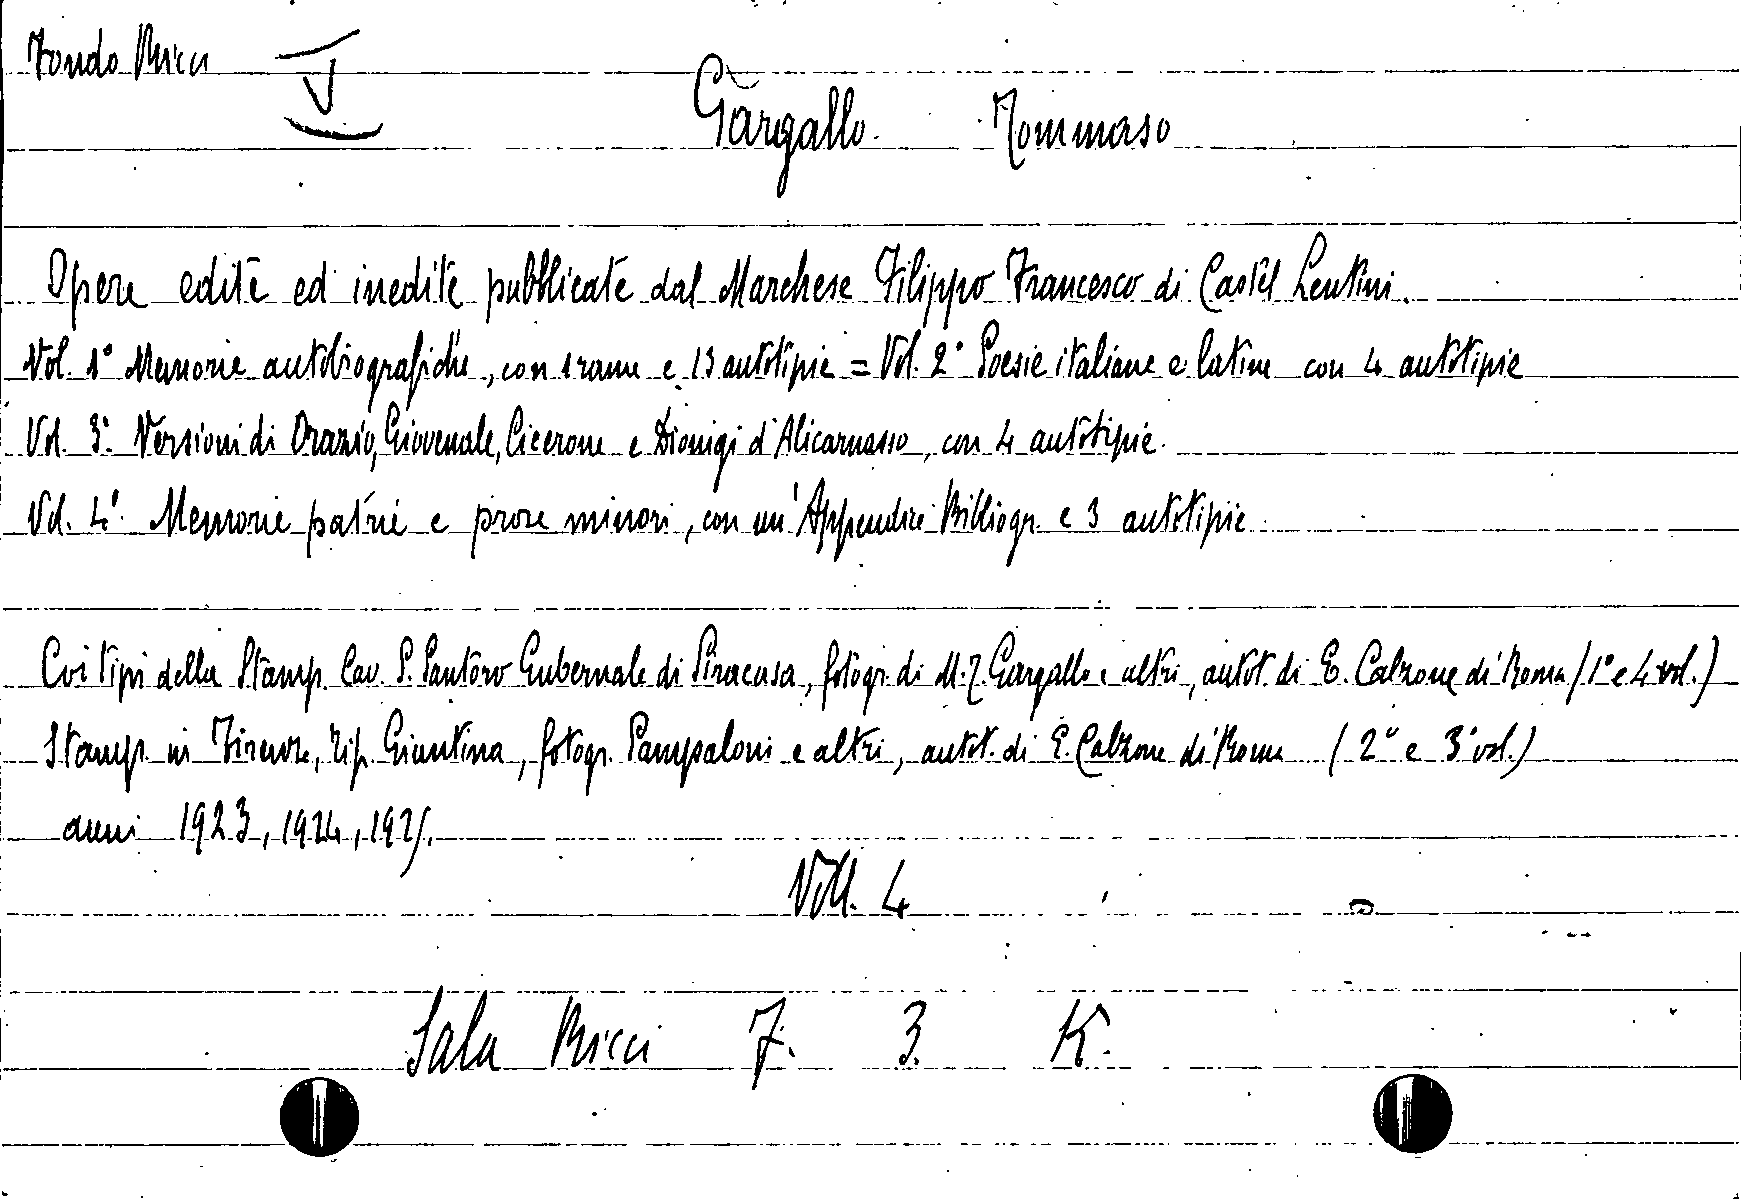 Fondo Ricci
Gargallo Tommaso
Opere edite ed inedite pubblicate dal Marchese Filippo Francesco di Castel Lentini.
Vol. 1° Memorie autobiografiche, con 1 rame e 13 autotipie = Vol. 2° Poesie italiane e latine con 4 autotipie
Vol. 3° Versioni di Orazio, Giovenale, Cicerone e Dionigi d'Alicarnasso, con 4 autotipie.
Vol. 4° Memorie patrie e prose minori, con un'Appendice Bibliogr. e 3 autotipie
Coi tipi della Stamp. Cav. S. Santoro Gubernale di Siracusa, fotogr. di M. F. Gargallo e altri, autot. di E. Calzone di Roma (1° e 4 vol.)
Stamp. in Firenze, Tip. Giuntina, fotogr. Pampaloni e altri, autot. di E. Calzone di Roma (2° e 3° vol.)
anni 1923, 1924, 1925.
Voll. 4
Sala Ricci 7. 3. K.